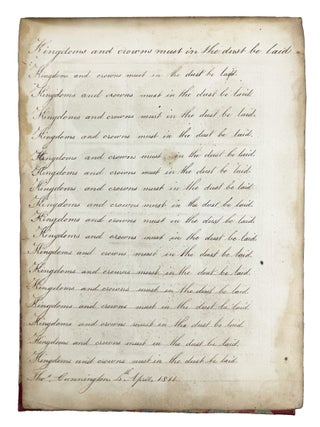 Kingdoms and crowns must in the dust be laid.
Kingdom and crowns must in the dust be laid.
Kingdoms and crowns must in the dust be laid.
Kingdoms and crowns must in the dust be laid.
Kingdoms and crowns must in the dust be laid.
Kingdoms and crowns must in the dust be laid.
Kingdoms and crowns must in the dust be laid.
Kingdoms and crowns must in the dust be laid.
Kingdoms and crowns must in the dust be laid.
Kingdoms and crowns must in the dust be laid.
Kingdoms and crowns must in the dust be laid.
Kingdoms and crowns must in the dust be laid.
Kingdoms and crowns must in the dust be laid.
Kingdoms and crowns must in the dust be laid.
Kingdoms and crowns must in the dust be laid.
Kingdoms and crowns must in the dust be laid.
Kingdoms and crowns must in the dust be laid.
Kingdoms and crowns must in the dust be laid.
Thos. Cunnington April, 1811.